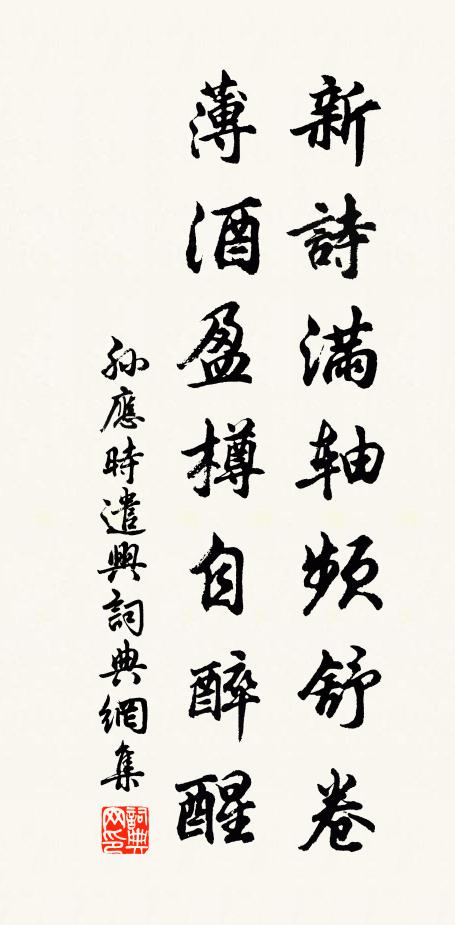 新詩滿軸頻舒卷
薄酒盈樽自醉醒
孫應時遣興詞典網集
詞典网印